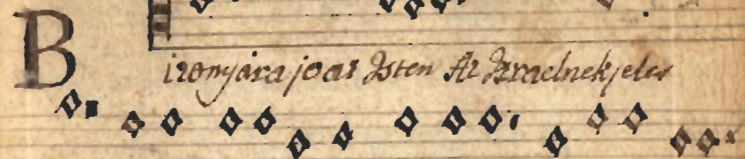 Bizonyára jo az Isten Az Izraelnek jeles